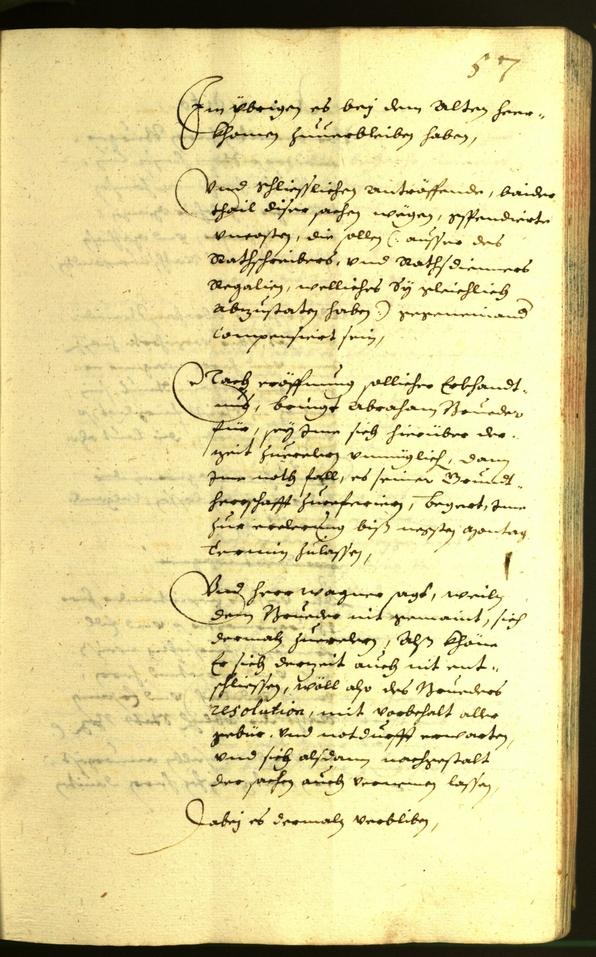 57
Im ÿbrigen es beÿ dem Alten heer-
khomen zuuerbleiben haben,
Vnd schliesslichen antröffende, baider
thail diser sachen wegen, spendierte
vncosten, die sollen (: ausser des
Rathschreibers, vnd Rathsdienners
Regalien, welliches Sÿ gleichlich
abzustaten haben :) gegeneinand
Compensiert sein,
Nach eröffnung sollicher Erkhandt-
nus, bringt Abraham Brueder
für, seÿ Ime sich hierüber der-
zeit zuerclern vnmüglich, dann
Ime noth fall, es seiner Grundt-
herrschafft zureferiern, begert, Ime
zur erclerung biß negsten Montag
Termin zulassen,
Vnd herr Wagner sagt, weiln
dem Brueder nit gemaint, sich
dermaln zuerclern, Alß khöne
Er sich derzeit auch nit ent-
schliessen, wöll also des Brueders
resolution, mit vorbehalt aller
gebür, vnd notdurfft erwarten,
vnd sich alsdann nachgestalt
der sachen auch vernemen lassen,
Dabeÿ es dermaln verbliben,